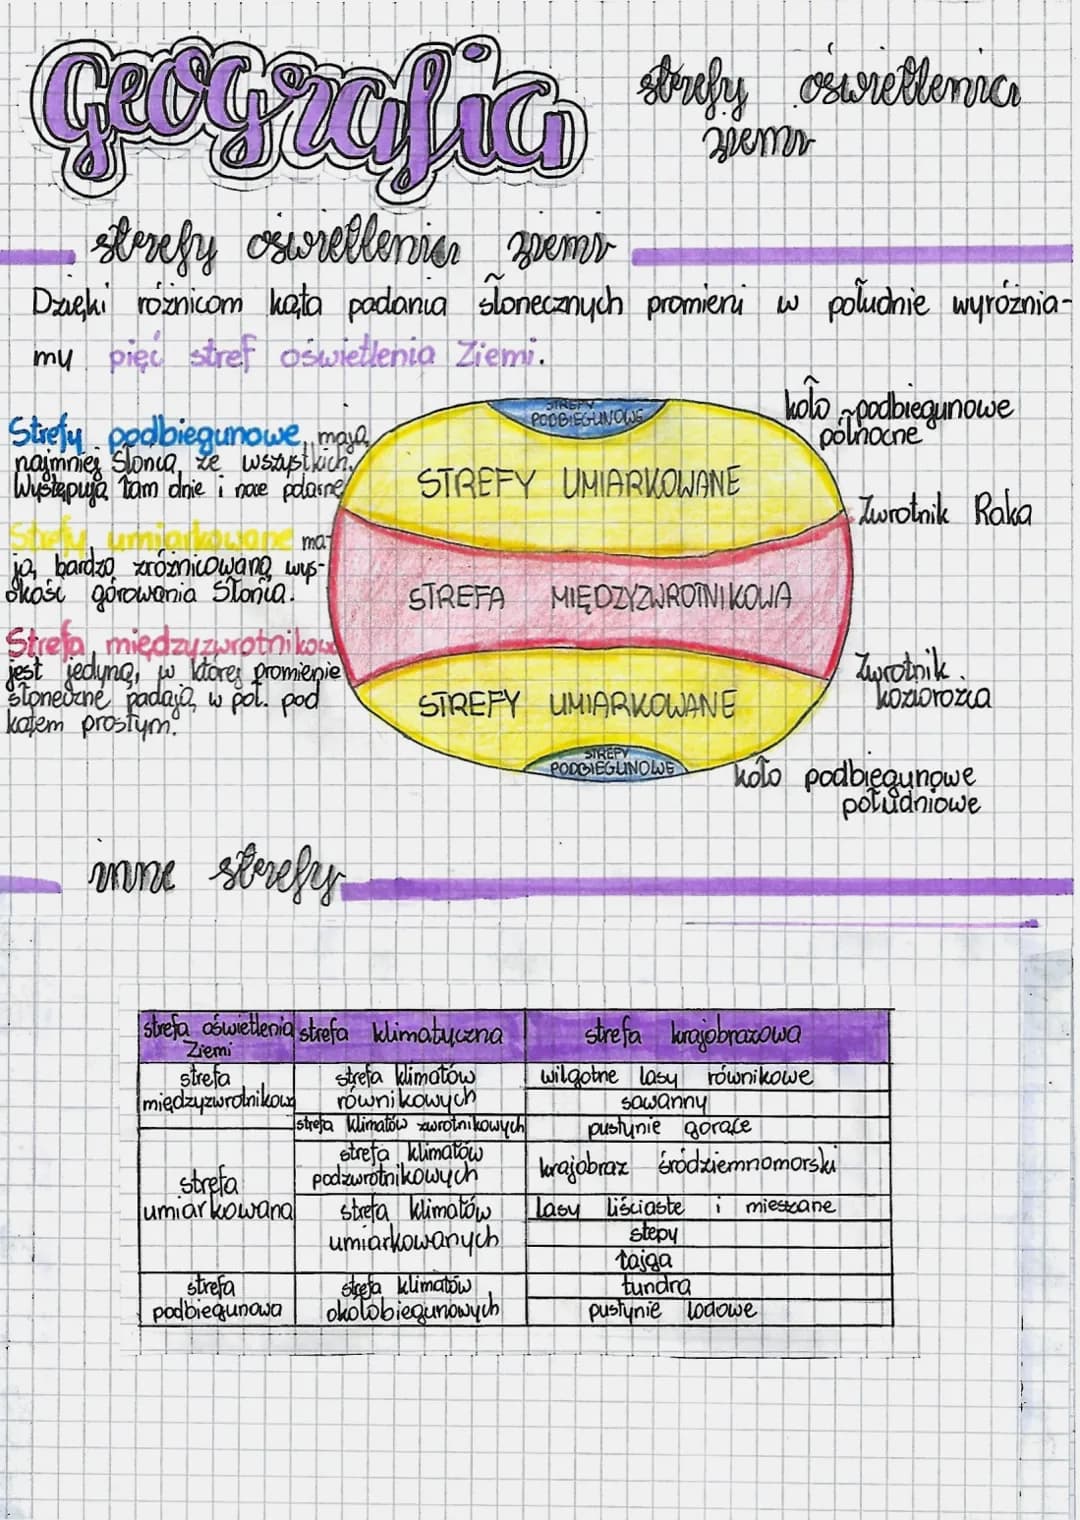 Geografia
strefy oświetlenia
ziemi
strefy oświetlenia ziemi
Dzięki różnicom kąta padania słonecznych promieni w południe wyróżnia-
my pięć stref oświetlenia Ziemi.
Strefy podbiegunowe mają
najmniej Słońca ze wszystkich.
Występują tam dnie i noce polarne
Strefy umiarkowane ma-
ją bardzo zróżnicowaną wys-
okość górowania Słońca.
Strefa międzyzwrotnikowa
jest jedyną, w której promienie
słoneczne padają w poł. pod
kątem prostym.
STREFY
PODBIEGUNOWE
STREFY UMIARKOWANE
STREFA MIĘDZYZWROTNIKOWA
STREFY UMIARKOWANE
STREFY
PODBIEGUNOWE
koło podbiegunowe
północne
Zwrotnik Raka
Zwrotnik
koziorożca
koło podbiegunowe
południowe
inne strefy
strefa oświetlenia Ziemi strefa klimatyczna strefa krajobrazowa
strefa międzyzwrotnikowa strefa klimatów równikowych wilgotne lasy równikowe
sawanny
strefa klimatów zwrotnikowych pustynie gorące
strefa umiarkowana strefa klimatów podzwrotnikowych krajobraz śródziemnomorski
strefa klimatów umiarkowanych lasy liściaste i mieszane
stepy
tajga
strefa podbiegunowa strefa klimatów okołobiegunowych tundra
pustynie lodowe